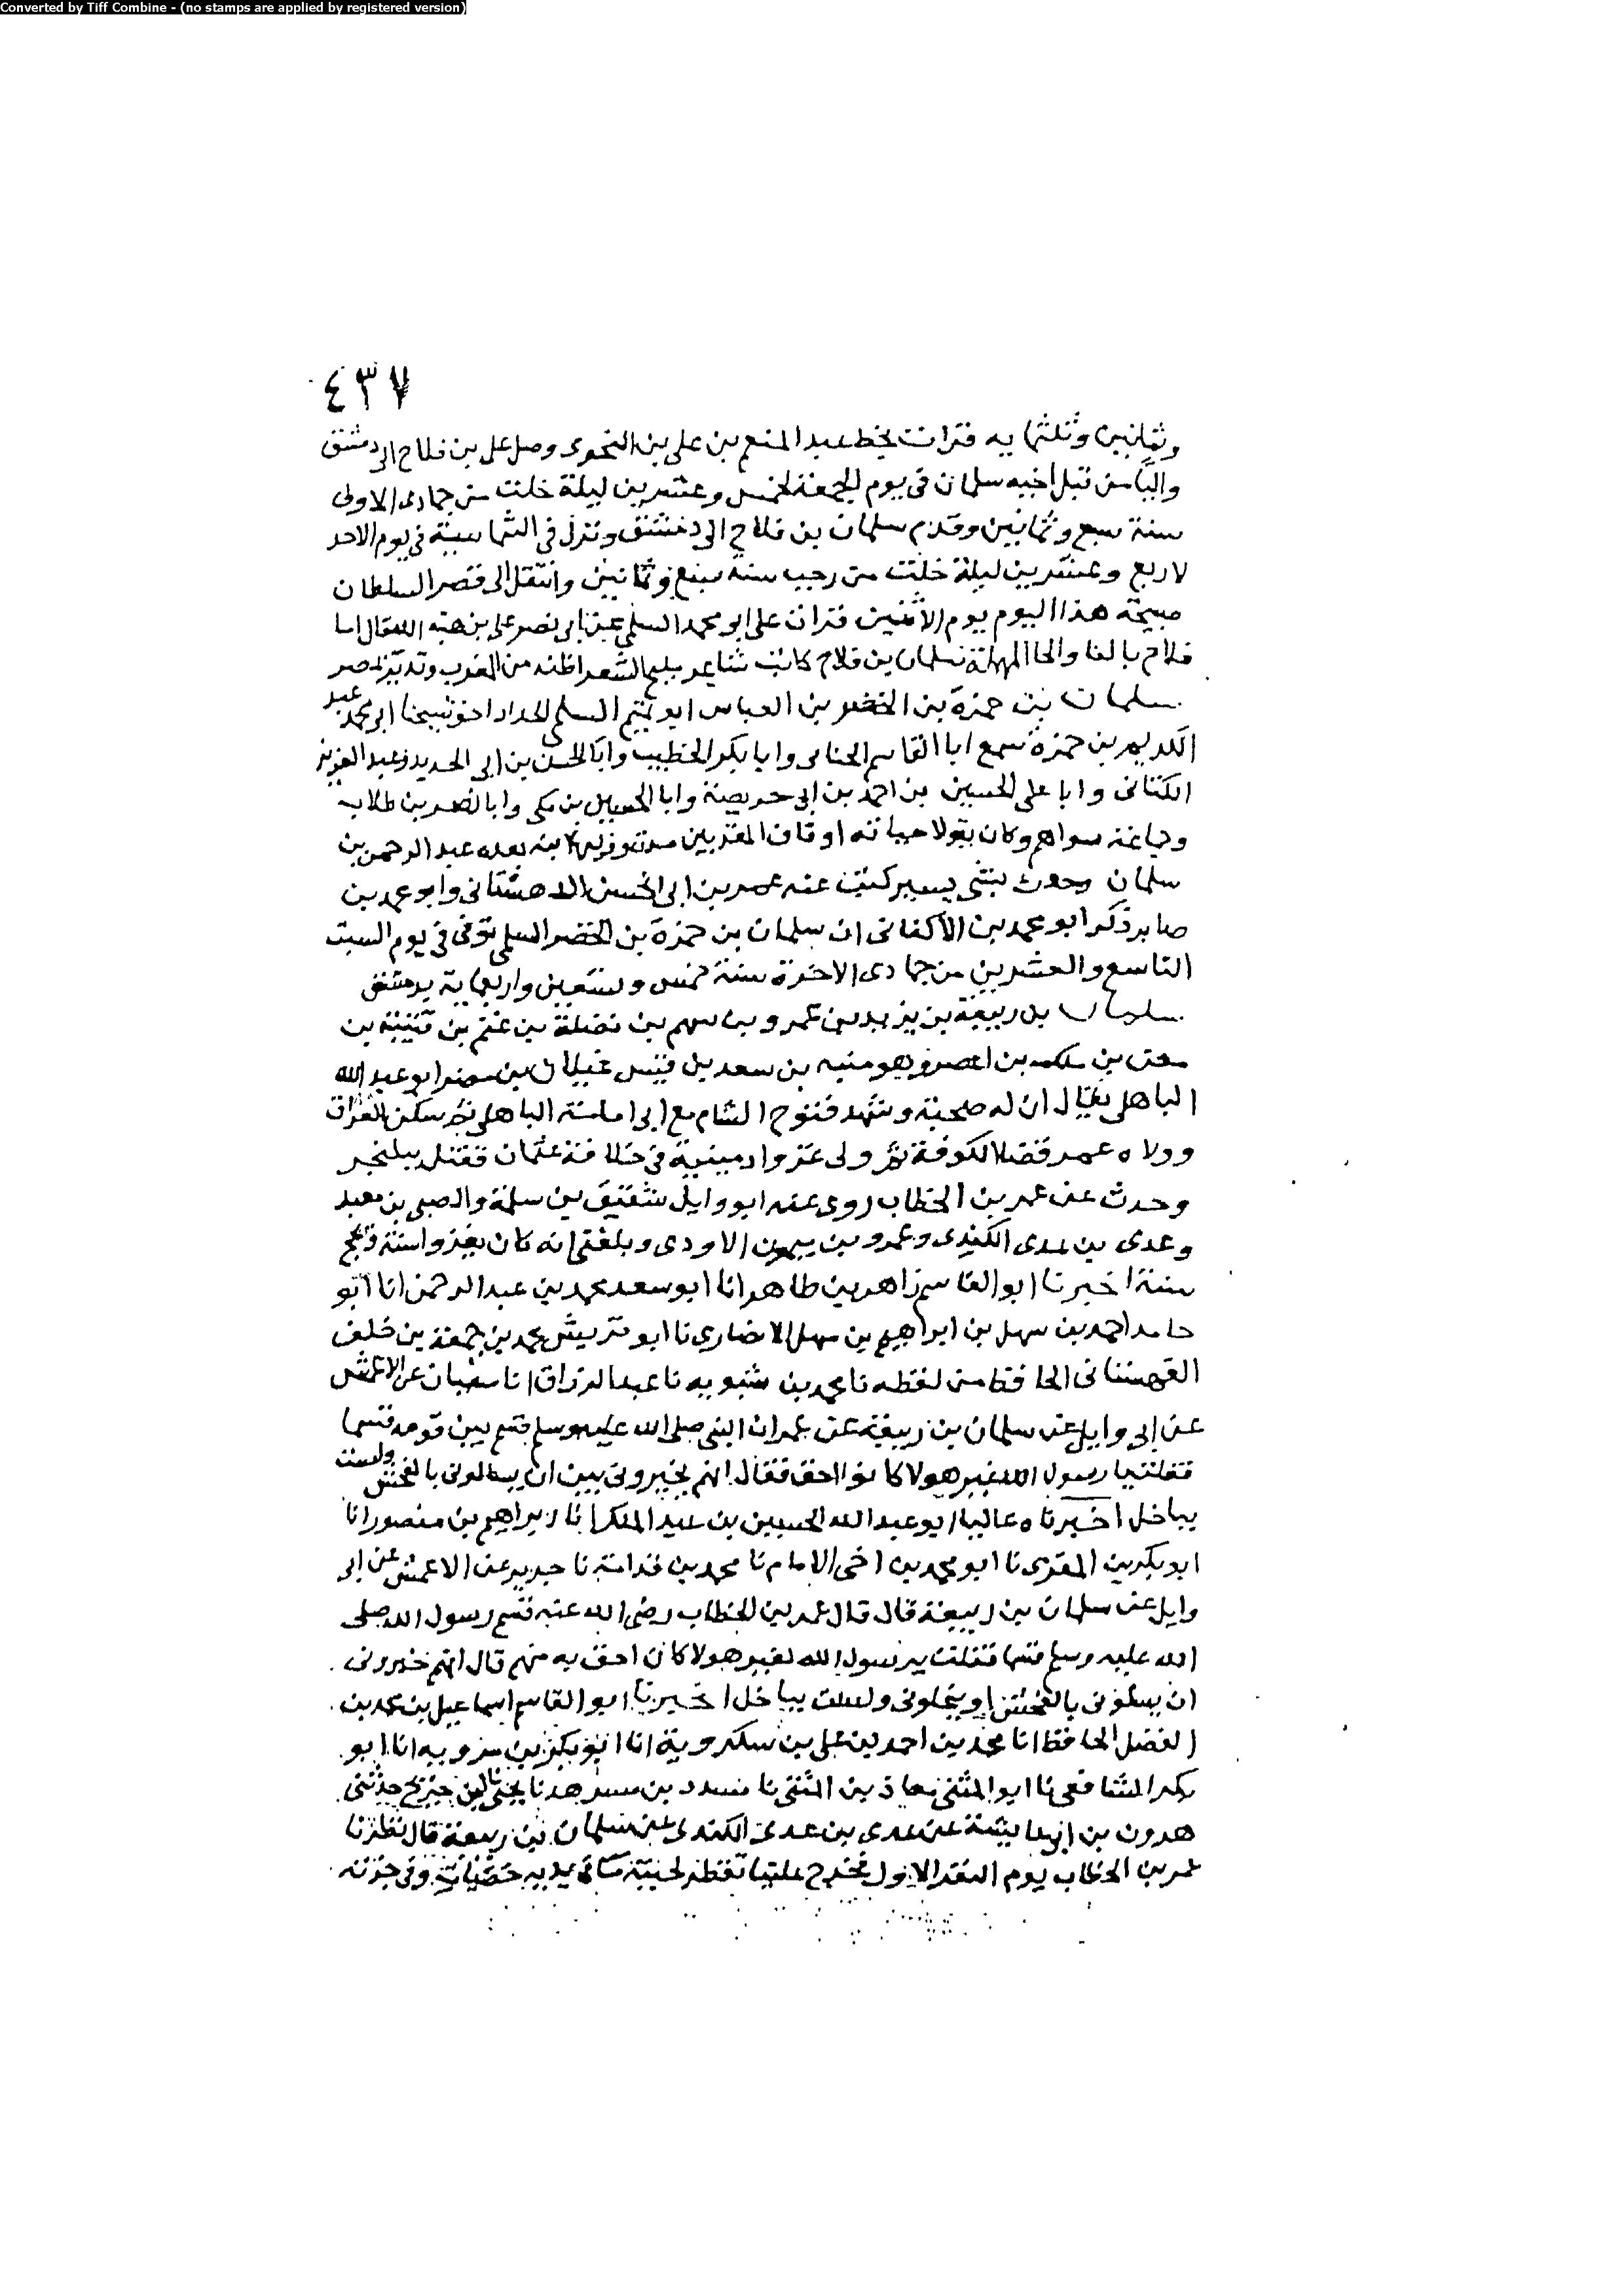 Converted by Tiff Combine - (no stamps are applied by registered version)
٤٣٧
وثمانين وثلثمايه قرات بخط عبد المنعم بن علي بن النحوى وصل علي بن فلاح الى دمشق
واليا من قبل اخيه سلمان في يوم الجمعة لخمس وعشرين ليلة خلت من جمادى الاولى
سنة سبع وثمانين وقدم سلمان بن فلاح الى دمشق ونزل في الشماسية في يوم الاحد
لاربع وعشرين ليلة خلت من رجب سنة سبع وثمانين وانتقل الى قصر السلطان
صبيحة هذا اليوم يوم الاثنين قرات على ابو محمد السلمي عن ابى نصر على بن هبة الله قال اما
فلاح بالفا والحا المهملة سلمان بن فلاح كاتب شاعر مليح الشعر اظنه من المغرب وقد بمصر
سلمان بن حمزة بن الخضر بن العباس ابو تميم السلمي الحداد اخو شيخنا ابى محمد عبد
الكريم بن حمزة سمع ابا القاسم الحنائى وابا بكر الخطيب وابا الحسن بن ابي الحديد وعبد العزيز
الكتانى وابا على الحسين بن احمد بن ابى حريصة وابا الحسين بن مكى وابا نصر بن طلاب
وجماعة سواهم وكان يتولا جباته اوقاف المقريين لابنه بعده عبد الرحمن بن
سلمان وحدث بشى يسير كتب عنه عمر بن ابى الحسن الدهستانى وابو محمد بن
صابر ذكر ابو محمد بن الاكفانى ان سلمان بن حمزة بن الخضر السلمي توفى في يوم السبت
التاسع والعشرين من جمادى الاخرة سنة خمس وتسعين واربعماية بدمشق
سلمان بن ربيعة بن يزيد بن عمرو بن سهم بن نضلة بن غنم بن قتيبة بن
معن بن ملك بن اعصر وهو منبه بن سعد بن قيس غيلان بن مضر ابو عبد الله
الباهلى يقال ان له صحبة وشهد فتوح الشام مع ابى امامة الباهلى ثم سكن العراق
وولاه عمر قضا الكوفة ثم ولى غزو ارمينية في خلافة عثمان فقتل ببلنجر
وحدث عن عمر بن الخطاب روى عنه ابو وايل شقيق بن سلمة والصبى بن معبد
وعدى بن عدى الكندى وعمرو بن ميمون الاودى وبلغنى انه كان يغزو سنة ويحج
سنة اخبرنا ابو القاسم زاهر بن طاهر انا ابو سعد محمد بن عبد الرحمن انا ابو
حامد احمد بن سهل بن ابراهيم بن سهل الانصارى نا ابو قريش محمد بن جمعة بن خلف
القهستانى الحافظ من لفظه نا محمد بن شبويه نا عبد الرزاق انا سفيان عن الاعمش
عن ابى وايل عن سلمان بن ربيعة عن عمر ان النبى صلى الله عليه وسلم قسم بين قومه قسما
فقلت يا رسول الله غير هولا كانوا احق فقال انهم يخيرونى بين ان يسالونى بالفحش ولست
بباخل اخبرناه عاليا ابو عبد الله الحسين بن عبد الملك انا ابراهيم بن منصور انا
ابو بكر بن المقرى نا ابو محمد بن اخى الامام نا محمد بن قدامة نا جرير عن الاعمش عن ابى
وايل عن سلمان بن ربيعة قال قال عمر بن الخطاب رضى الله عنه قسم رسول الله صلى
الله عليه وسلم قسما فقلت يرسول الله لغير هولا كان احق به منهم قال انهم خيرونى
ان يسلونى بالفحش او يبخلونى ولست بباخل اخبرنا ابو القاسم اسماعيل بن محمد بن
الفضل الحافظ انا محمد بن احمد بن على بن شكرويه انا ابو بكر بن مردويه انا ابو
بكر الشافعى نا ابو المثنى معاذ بن المثنى نا مسدد بن مسرهد نا يحيى نا ابن جريج حدثنى
هرون بن ابى عايشة عن عدى بن عدى الكندى عن سلمان بن ربيعة قال نظرنا
عمر بن الخطاب يوم النفر الاول فخرج علينا تقطر لحيته ماء في يديه حصيات وفى حزته